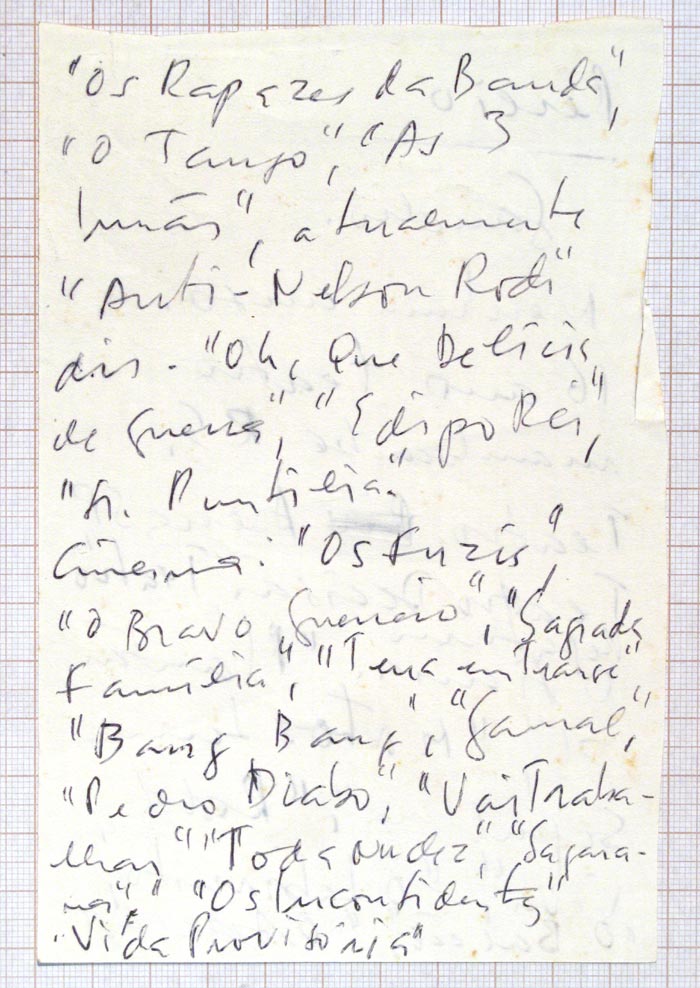 "Os Rapazes da Banda",
"O Tango", "As 3
Irmãs", atualmente
"Anti-Nelson Rodi"
dir. "Oh, Que Delícia
de Guerra", "Édipo Rei",
"Sr. Puntila".
Cinema: "Os Fuzis",
"O Bravo Guerreiro", "Sagrada
Família", "Terra em Transe"
"Bang Bang", "Gamal",
"Pedro Diabo", "Vai Traba-
lhar" "Toda Nudez", "Sagara-
na", "Os Inconfidentes"
"Vida Provisória"